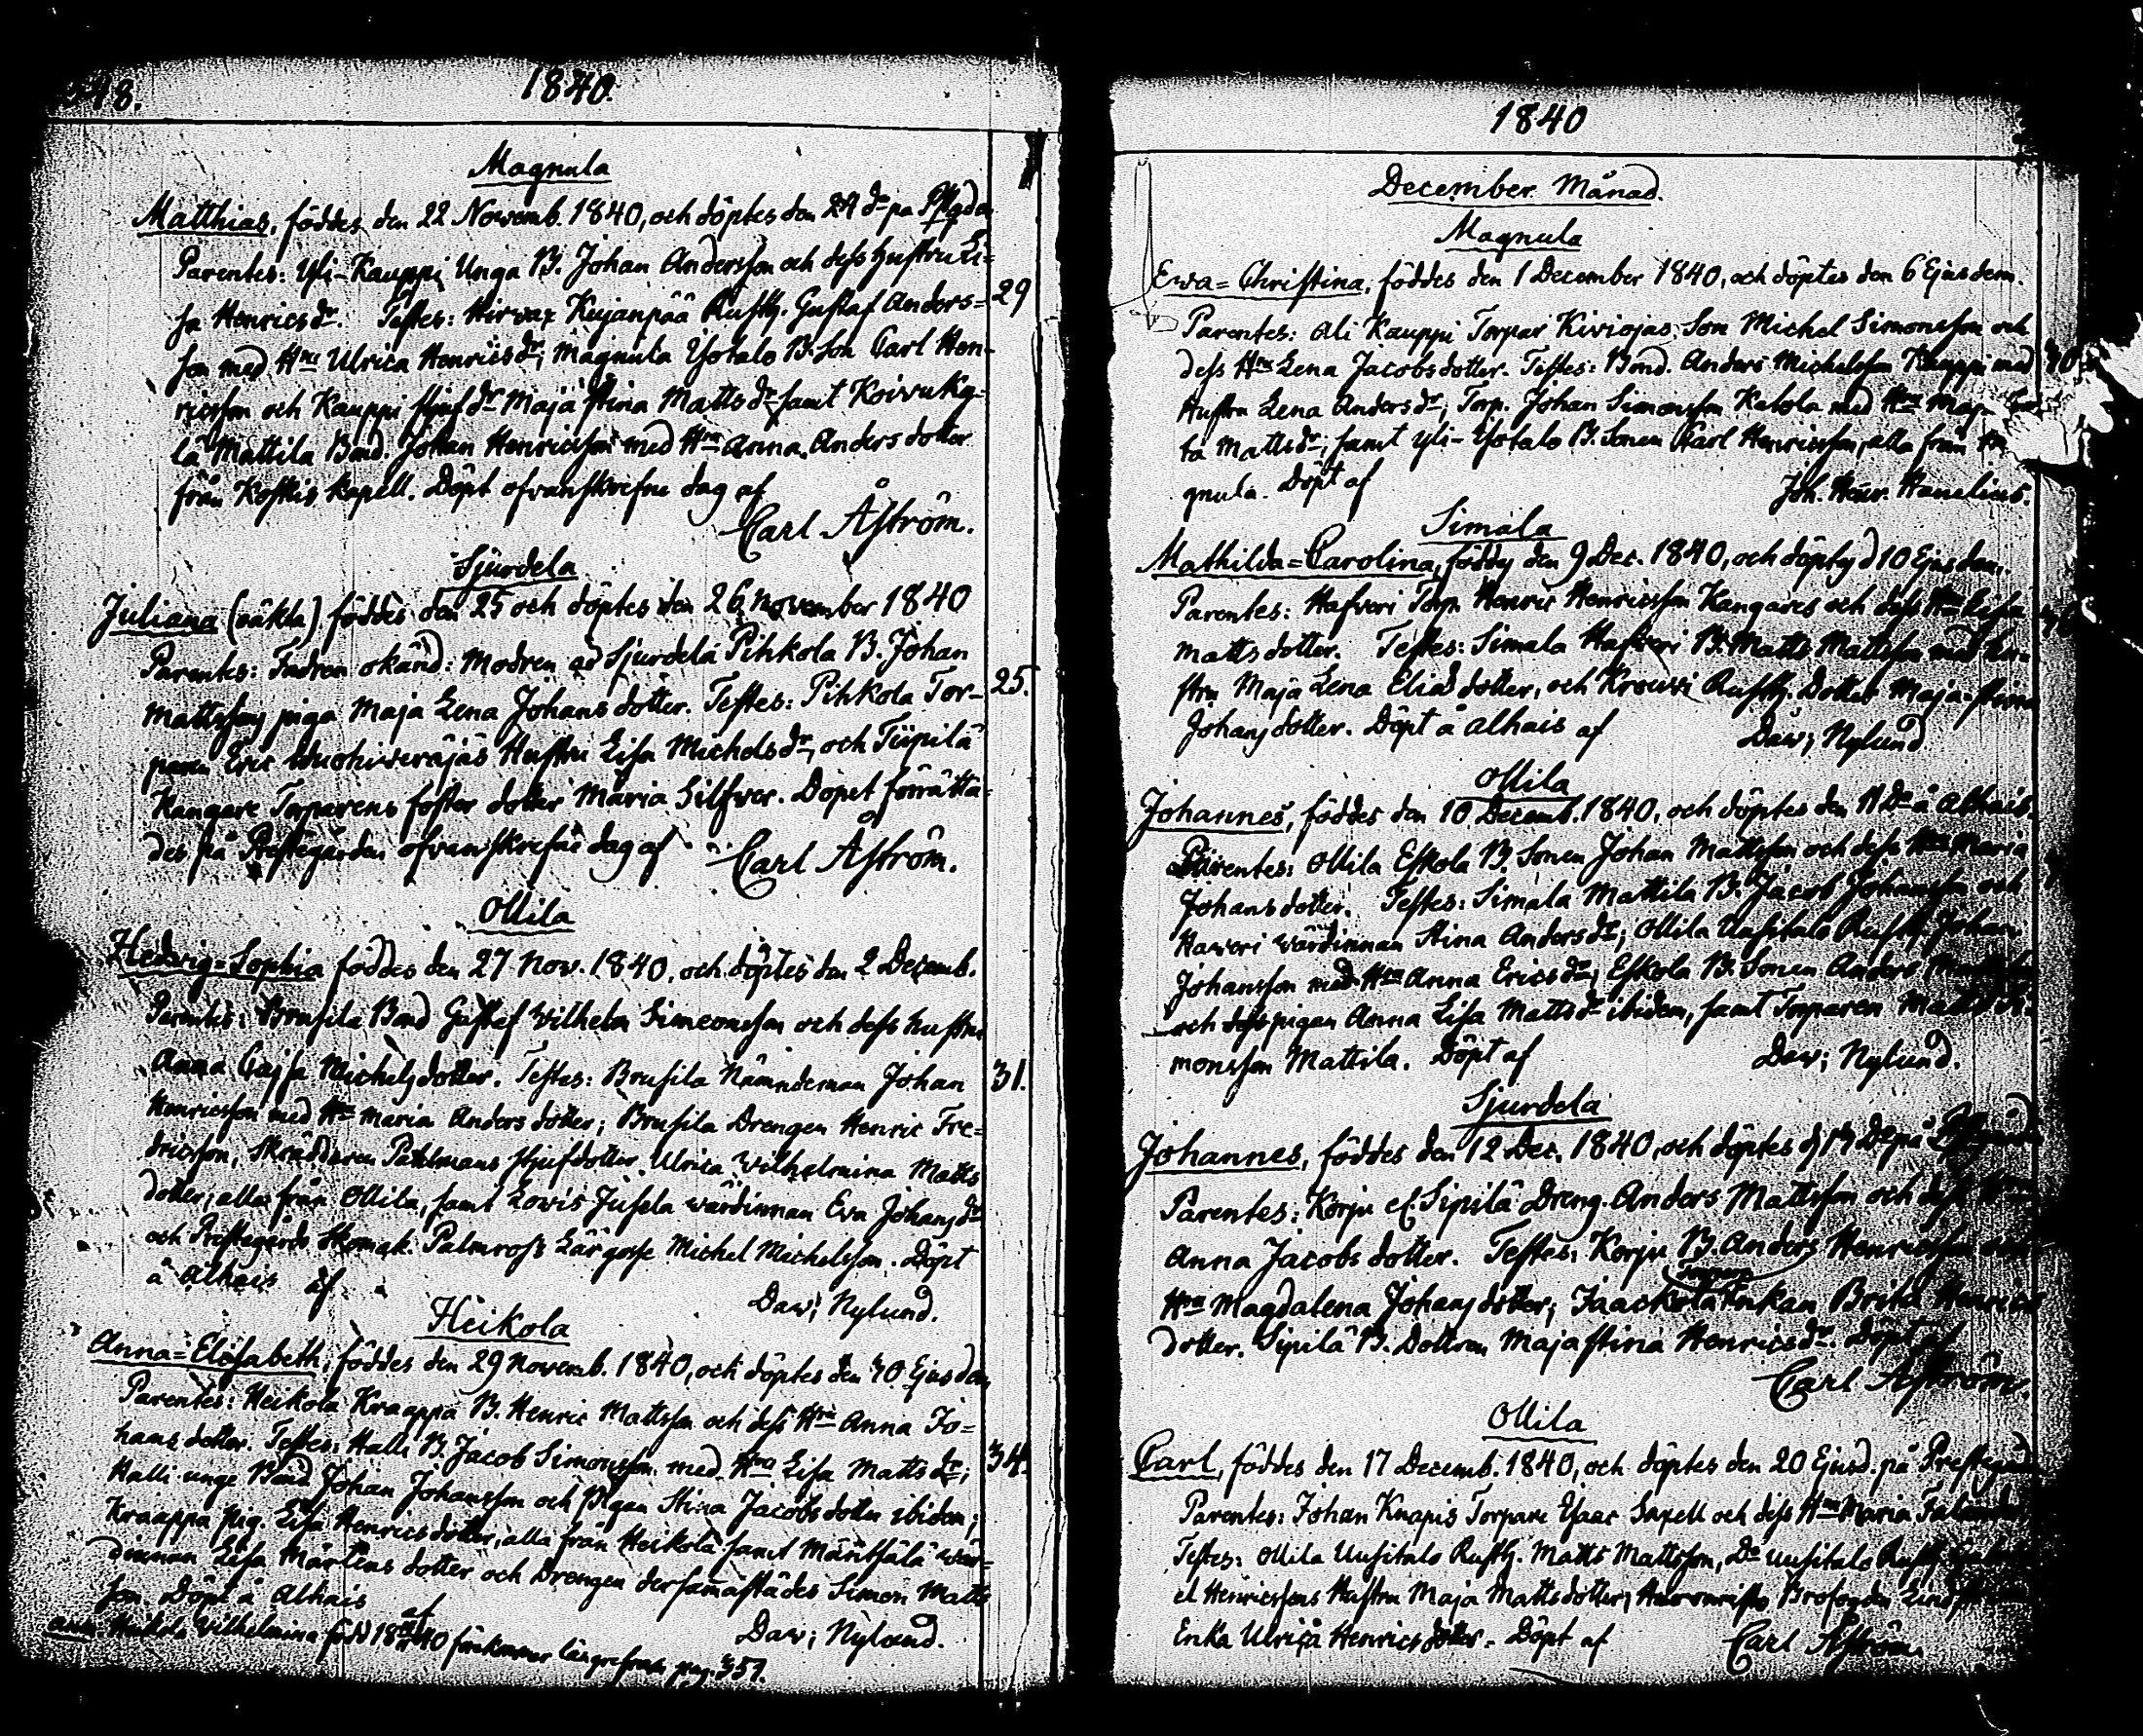 48.
1840.
Magnula
Matthias, föddes den 22 Novemb. 1840, och döptes den 24 do på Pstgden
Parentes: Yli-Kauppi Unga B. Johan Andersson och dess hustru Li=
sa Henricsdr. Testes: Hirvax Kujanpää Rusth. Gustaf Anders=
29
son med Hru Ulrica Henricsdr; Magnula Ysotalo B. Son Carl Hen-
ricsson och Kauppi stjufdr Maja Stina Mattsdr samt Koivuky-
lä Mattila Bond. Johan Henricsson med Hru Anna Andersdotter
från Koskis kapell. Döpt ofvanskrefne dag af
Carl Åström.
Sjurdela
Juliana (oäkta) föddes den 25 och döptes den 26 November 1840
Parentes: Fadren okänd: Modren ad Sjurdela Pihkola B. Johan
Mattssons piga Maja Lena Johansdotter. Testes: Pihkola Tor-
25.
paren Eric Wuohiverajas Hustru Lisa Michelsdr, och Tiipilä
Kangare Torparens foster dotter Maria Silfver. Dopet förrätta-
des på Prestegården ofvanskrefne dag af
Carl Åström.
Ollila
Hedvig=Sophia föddes den 27 Nov. 1840, och döptes den 2 Decemb.
Parentes: Brusila Bond Gustaf Wilhelm Simeonsson och dess hustru
Anna Cajsa Michelsdotter. Testes: Brusila Nämndeman Johan
31.
Henricsson med Hru Maria Andersdotter; Brusila Drengen Henric Fre=
dricsson, Skräddaren Pahlmans stjufdotter Ulrica Wilhelmina Matts
dotter, alla från Ollila, samt Lowis Jusela wärdinnan Eva Johansdr
och Prestegårds Skomak. Palmross Lärgosse Michel Michelsson. Döpt
å Alhais af
Dav; Nylund.
Heikola
Anna=Elisabeth, föddes den 29 Novemb. 1840, och döptes den 30 Ejusdem
Parentes: Heikola Kraappa B. Henric Mattsson och dess Hru Anna Jo=
hansdotter. Testes: Halli B. Jacob Simonsson med Hru Lisa Mattsdr;
34.
Halli unge Bond Johan Johansson och Pigan Stina Jacobsdotter ibidem;
Kraappa Pig. Lisa Henricsdotter, alla från Heikola samt Mäntsälä wär-
dinnan Lisa Mårtens dotter och Drengen dersammastädes Simon Matts
son. Döpt å Alhais af
Dav; Nylund.
Anm. Heikola Wilhelmina född 18 40 förekommer längre fram pag. 351.
1840
December Månad.
Magnula
Ewa=Christina, föddes den 1 December 1840, och döptes den 6 Ejusdem.
Parentes: Ali Kauppi Torpar Kiviojas Son Michel Simonsson och
dess Hru Lena Jacobsdotter. Testes: Bond. Anders Michelsson Kauppi med
Hustru Lena Andersdr; Torp. Johan Simonsson Katola med Hru
ta Mattsdr; samt Yli-Ysotalo B. Sonen Karl Henricsson, alla från Ma
gnula. Döpt af
Joh. Henr. Hanelius.
Simala
Mathilda=Carolina, föddes den 9 Dec. 1840, och döptes d 10 Ejusdem.
Parentes: Hafveri Torp. Henric Henricsson Kangares och dess Hru Lisa
Mattsdotter. Testes: Simala Hafveri B. Matts Mattsson med Hu-
stru Maja Lena Eliædotter, och Krouvi Rusth. Dotter Maja Stina
Johansdotter. Döpt å Alhais af
Dav; Nylund
Ollila
Johannes, föddes den 10 Decemb. 1840, och döptes den 11 do å Alhais.
Parentes: Ollila Eskola B. Sonen Johan Mattsson och dess Hru Maria
Johansdotter. Testes: Simala Mattila B. Jacob Johansson och
Haweri wärdinnan Stina Andersdr; Ollila Uusitalo Rusth. Johan
Johansson med Hru Anna Ericsdr; Eskola B. Sonen Anders
och dess pigan Anna Lisa Mattsdr ibidem, samt Torparen Matts Si-
monsson Mattila. Döpt af
Dav; Nylund.
Sjurdela
Johannes, föddes den 12 Dec. 1840, och döptes d. 13 do på
Parentes: Korju el. Sipilä Dreng. Anders Mattsson och dess Hru
Anna Jacobsdotter. Testes: Korju B. Anders Henricsson och
Hru Magdalena Johansdotter; Jaackola Enkan Brita Henrics
dotter. Sipilä B. Dottren Maja Stina Henricsdr. Döpt af
Carl Åström.
Ollila
Carl, föddes den 17 Decemb. 1840, och döptes den 20 Ejusd. på Prestegård
Parentes: Johan Knapis Torpare Ysaac Saxell och dess Hru Maria
Testes: Ollila Uusitalo Rusth. Matts Mattsson, Do Uusitalo Rusth.
el Henricssons Hustru Maja Mattsdotter,
Enka Ulrica Henricsdotter. Döpt af
Carl Åström.